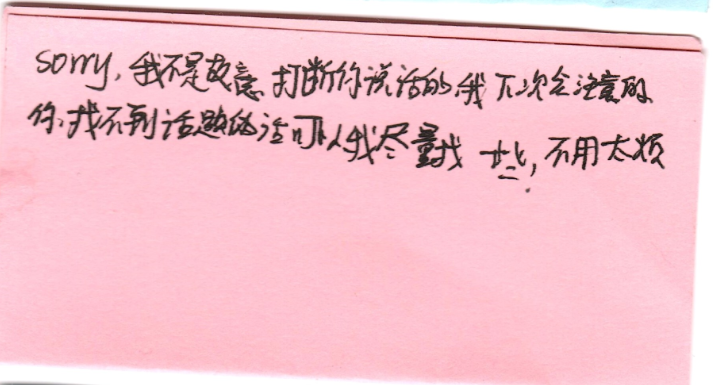 sorry, 我不是故意打断你说话的,我下次会注意的
你找不到话题的话可以我尽量找一些,不用太烦